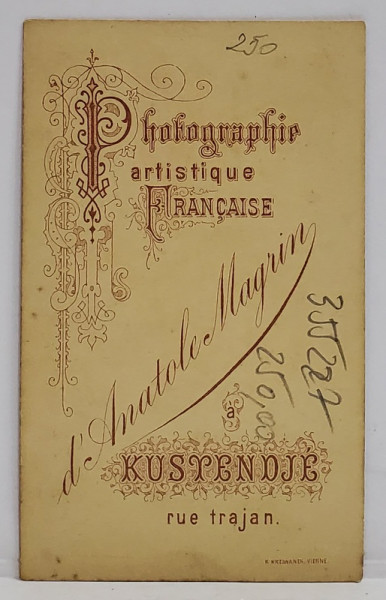 250
Photographie
artistique
FRANÇAISE
d'Anatole Magrin
à
KUSTENDJÉ
rue trajan.
250,000